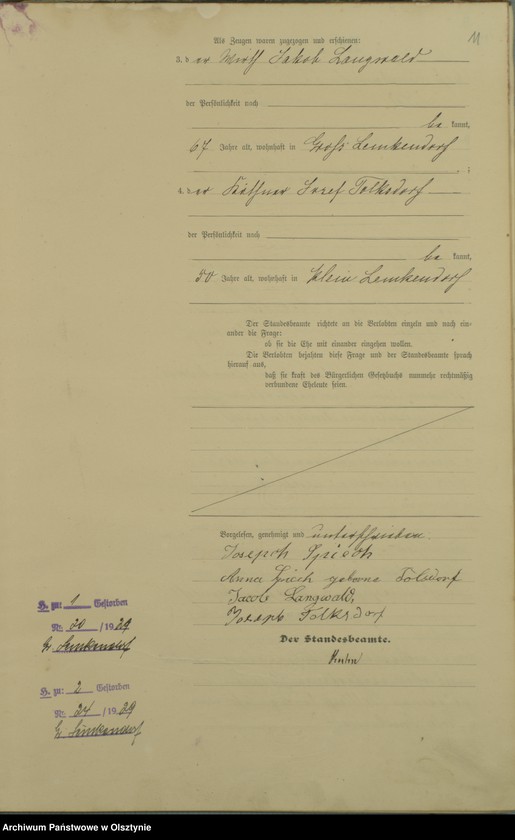 11
Als Zeugen waren zugezogen und erschienen:
3. der Wirth Jakob Langwald
der Persönlichkeit nach
be kannt,
67 Jahre alt, wohnhaft in Groß Lemkendorf
4. der Käthner Josef Tolksdorf
der Persönlichkeit nach
be kannt,
50 Jahre alt, wohnhaft in Klein Lemkendorf
Der Standesbeamte richtete an die Verlobten einzeln und nach ein-
ander die Frage:
ob sie die Ehe mit einander eingehen wollen.
Die Verlobten bejahten diese Frage und der Standesbeamte sprach
hierauf aus,
daß sie kraft des Bürgerlichen Gesetzbuchs nunmehr rechtmäßig
verbundene Eheleute seien
Vorgelesen, genehmigt und unterschrieben.
Joseph
Anna geborene
Jacob Langwald,
Joseph Tolksdorf
Der Standesbeamte.
H. zu: 1 Gestorben
Nr. 20 / 1929
Gr. Lemkendorf
H. zu: 2 Gestorben
Nr. 24 / 1929
Gr. Lemkendorf
Archiwum Państwowe w Olsztynie